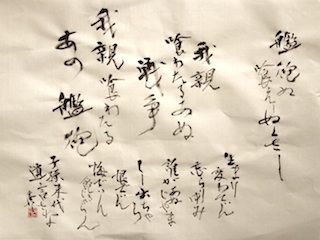 艦砲ぬ
喰ぇーぬくさー
我親
喰わたるあぬ
戦争
我親喰わたる
あの艦砲
生まり
変わてぃん
忘らりゆみ
誰があぬじゃま
しー出ちゃら
恨でぃん
悔でぃん
飽きじゃらん
子孫末代
遺言さな